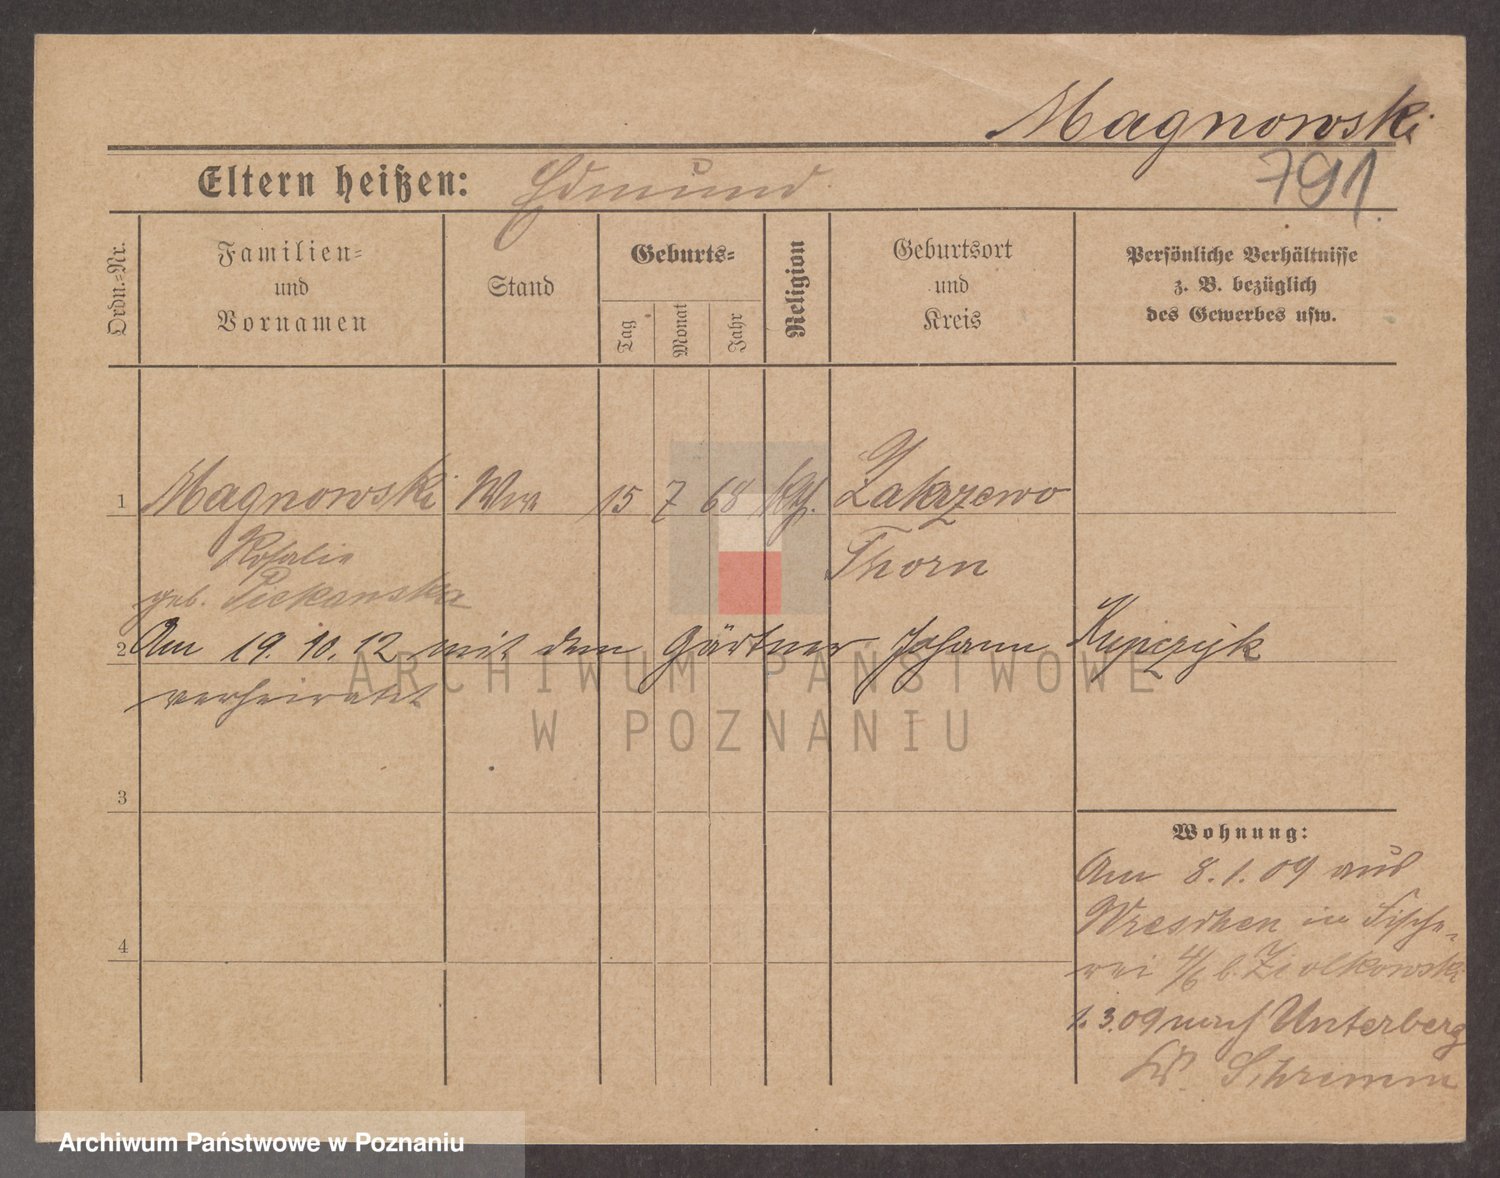 Magnowski
791.
Eltern heißen: Edmund
Ordn.=Nr.
Familien=
und
Vornamen
Stand
Geburts=
Tag
Monat
Jahr
Religion
Geburtsort
und
Kreis
Persönliche Verhältnisse
z. B. bezüglich
des Gewerbes usw.
1 Magnowski Wwe 15 7 68 kth. Zakrzewo
Rosalie Thorn
geb. Piekanska
2 Am 19. 10. 12 mit dem Gärtner Johann Kupczyk
verheiratet
3
4
Wohnung:
Am 8. 1. 09 aus
Wreschen in Fische-
rei 4/6 b. Ziolkowski
1. 3. 09 nach Unterberg
Kr. Schrimm
ARCHIWUM PAŃSTWOWE
W POZNANIU
Archiwum Państwowe w Poznaniu